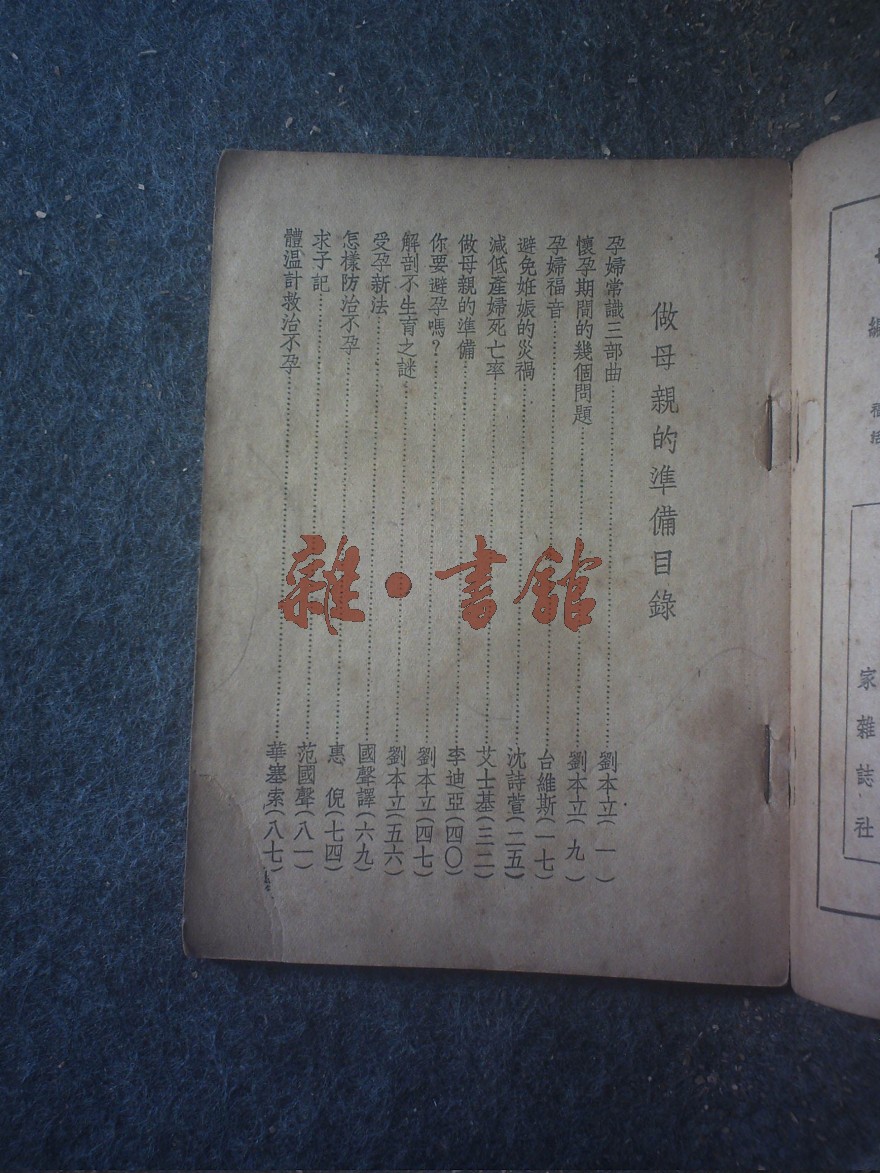 做母親的準備目錄
孕婦常識三部曲⋯⋯劉本立(一)
懷孕期間的幾個問題⋯⋯劉本立(九)
孕婦福音⋯⋯台維斯(一七)
避免姙娠的災禍⋯⋯沈詩萱(二五)
減低產婦死亡率⋯⋯艾士基(三二)
做母親的準備⋯⋯李迪亞(四〇)
你要避孕嗎?⋯⋯劉本立(四七)
解剖不生育之謎⋯⋯劉本立(五六)
受孕新法⋯⋯國聲譯(六九)
怎樣防治不孕⋯⋯惠 倪(七四)
求子記⋯⋯范國聲(八一)
體温計救治不孕⋯⋯華塞索(八七)
雜·書館
家雜誌社